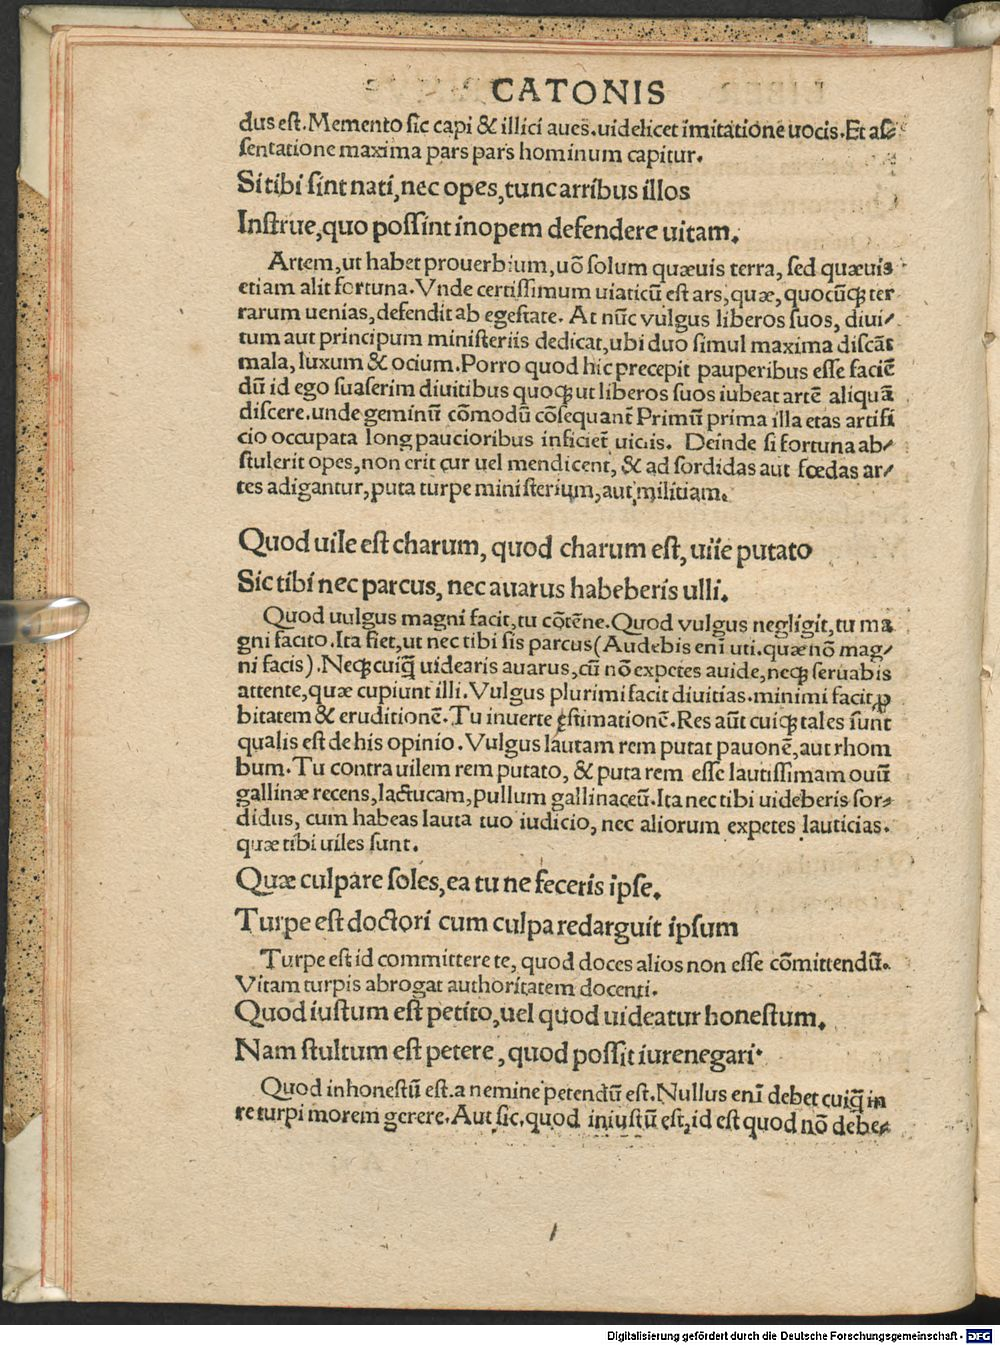 CATONIS
dus est. Memento sic capi & illici aues. uidelicet imitatione uocis. Et as-
sentatione maxima pars pars hominum capitur.
Si tibi sint nati, nec opes, tunc arribus illos
Instrue, quo possint inopem defendere uitam.
Artem, ut habet prouerbium, uō solum quæuis terra, sed quæuis
etiam alit fortuna. Vnde certissimum uiaticū est ars, quæ, quocūqꝫ ter
rarum uenias, defendit ab egestate. At nūc vulgus liberos suos, diui/
tum aut principum ministeriis dedicat, ubi duo simul maxima discāt
mala, luxum & ocium. Porro quod hic precepit pauperibus esse faciē
dū id ego suaserim diuitibus quoqꝫ ut liberos suos iubeat artē aliquā
discere. unde geminū cōmodū cōsequant̄ Primū prima illa etas artifi
cio occupata long paucioribus inficiet̄ uiciis. Deinde si fortuna ab/
stulerit opes, non erit cur uel mendicent, & ad sordidas aut fœdas ar/
tes adigantur, puta turpe ministerium, aut militiam.
Quod uile est charum, quod charum est, uile putato
Sic tibi nec parcus, nec auarus habeberis ulli.
Quod uulgus magni facit, tu cōtēne. Quod vulgus negligit, tu ma
gni facito. Ita fiet, ut nec tibi sis parcus (Audebis enī uti. quæ nō mag/
ni facis). Neqꝫ cuiq̄ uidearis avarus, cū nō expetes auide, neqꝫ seruabis
attente, quæ cupiunt illi. Vulgus plurimi facit diuitias. minimi facit ꝓ
bitatem & eruditionē. Tu inuerte ęstimationē. Res aūt cuiqꝫ tales sunt
qualis est de his opinio. Vulgus lautam rem putat pauonē, aut rhom
bum. Tu contra uilem rem putato, & puta rem esse lautissimam ouū
gallinæ recens, lactucam, pullum gallinaceū. Ita nec tibi uideberis sor-
didus, cum habeas lauta tuo iudicio, nec aliorum expetes lauticias.
quæ tibi uiles sunt.
Quæ culpare soles, ea tu ne feceris ipse.
Turpe est doctori cum culpa redarguit ipsum
Turpe est id committere te, quod doces alios non esse cōmittendū.
Vitam turpis abrogat authoritatem docenti.
Quod iustum est petito, uel quod uideatur honestum.
Nam stultum est petere, quod possit iure negari.
Quod inhonestū est. a nemine petendū est. Nullus enī debet cuiq̄ in
re turpi morem gerere. Aut sic. quod iniustū est, id est quod nō debe-
Digitalisierung gefördert durch die Deutsche Forschungsgemeinschaft - DFG